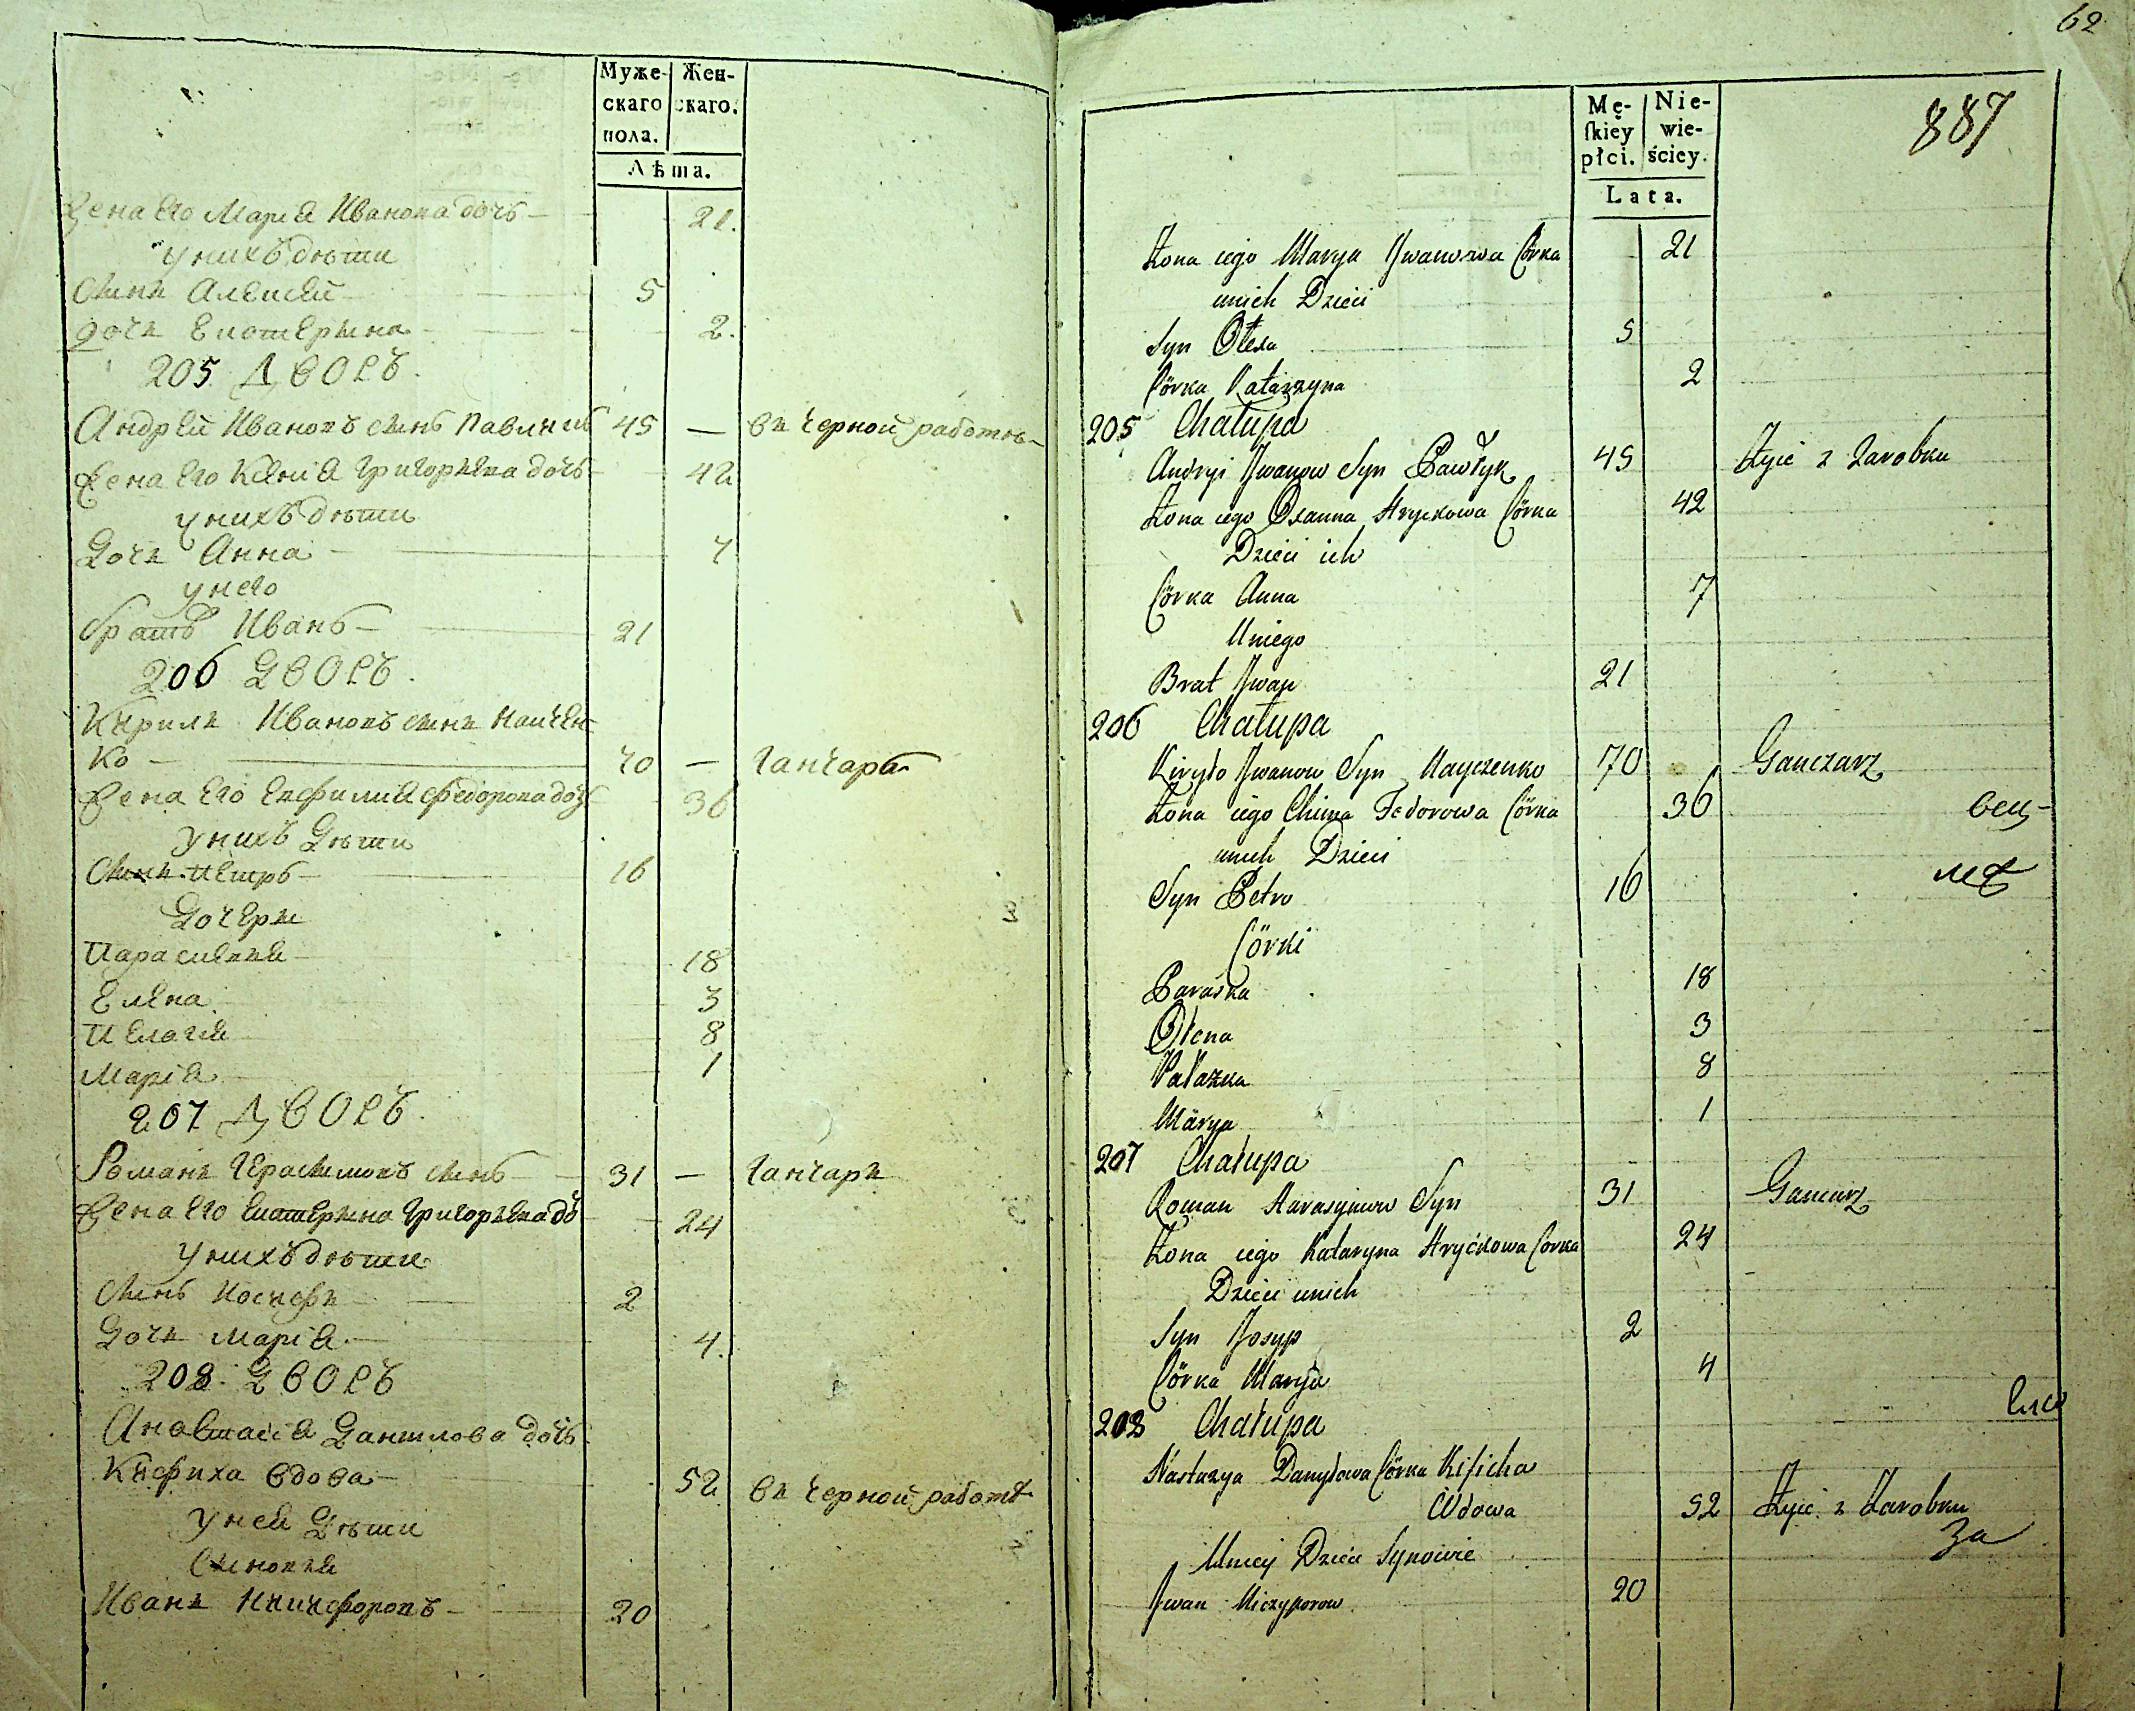 Муже-
скаго
пола.
Жен-
скаго.
Лѣта.
Жена его Марія Иванова дочь 21.
у нихъ дѣти
Сынъ Алексѣй 5
дочь Екатерына 2.
205 Дворъ.
Андрей Ивановъ сынъ Павликъ 45 — въ черной работѣ
Жена его Ксенія Григорьева дочь 42
у нихъ дѣти
Дочь Анна 7
у него
братъ Иванъ 21
206 Дворъ.
Кирилъ Ивановъ сынъ Найчен-
ко 70 — Ганчаръ
Жена его Евфимія Федорова дочь 36
у нихъ дѣти
Сынъ Петръ 16
Дочеры
Параскевія 18
Елена 3
Пелагія 8
Марія 1
207 Дворъ.
Романъ Герасимовъ сынъ 31 — Ганчаръ
Жена его Екатерына Григорьева дочь 24
у нихъ дѣти
Сынъ Іосифъ 2
Дочь Марія 4.
208 Дворъ
Анастасія Данилова дочь
Кисиха вдова 52 въ черной работѣ
у ней Дѣти
Сыновья
Иванъ Никифоровъ 20
62
Mę-
skiey
płci.
Nie-
wie-
ściey.
Lata.
887
Żona iego Marya Jwanowa Córka 21
unich Dzieci
Syn Ołexa 5
Córka Katarzyna 2
205 Chałupa
Andryi Jwanow Syn Pawłyk 45 Żyie z Zarobku
Żona iego Oxanna Hryckowa Córka 42
Dzieci ich
Córka Anna 7
Uniego
Brat Jwan 21
206 Chałupa
Kiryło Jwanow Syn Nayczenko 70 Ganczarz
Żona iego Chima Fedorowa Córka 36
unich Dzieci
Syn Petro 16
Córki
Paraska 18
Ołena 3
Pałazka 8
Marya 1
207 Chałupa
Roman Harasymow Syn 31 Ganczarz
Żona iego Kataryna Hryćkowa Corka 24
Dzieci unich
Syn Josyp 2
Córka Marya 4
208 Chałupa
Nastazya Danyłowa Córka Kisicha
Wdowa 52 Żyie z Zarobku
За
Uniey Dzieci Synowie
Jwan Niczyporow 20